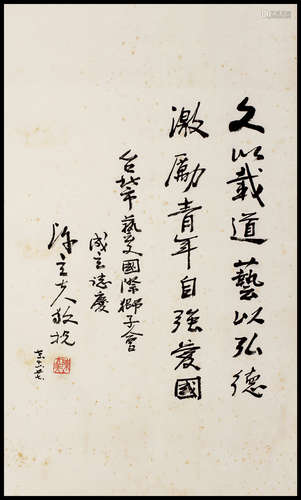 文以載道藝以弘德
激勵青年自強愛國
台北市藝文國際獅子會
成立誌慶
陳立夫敬祝